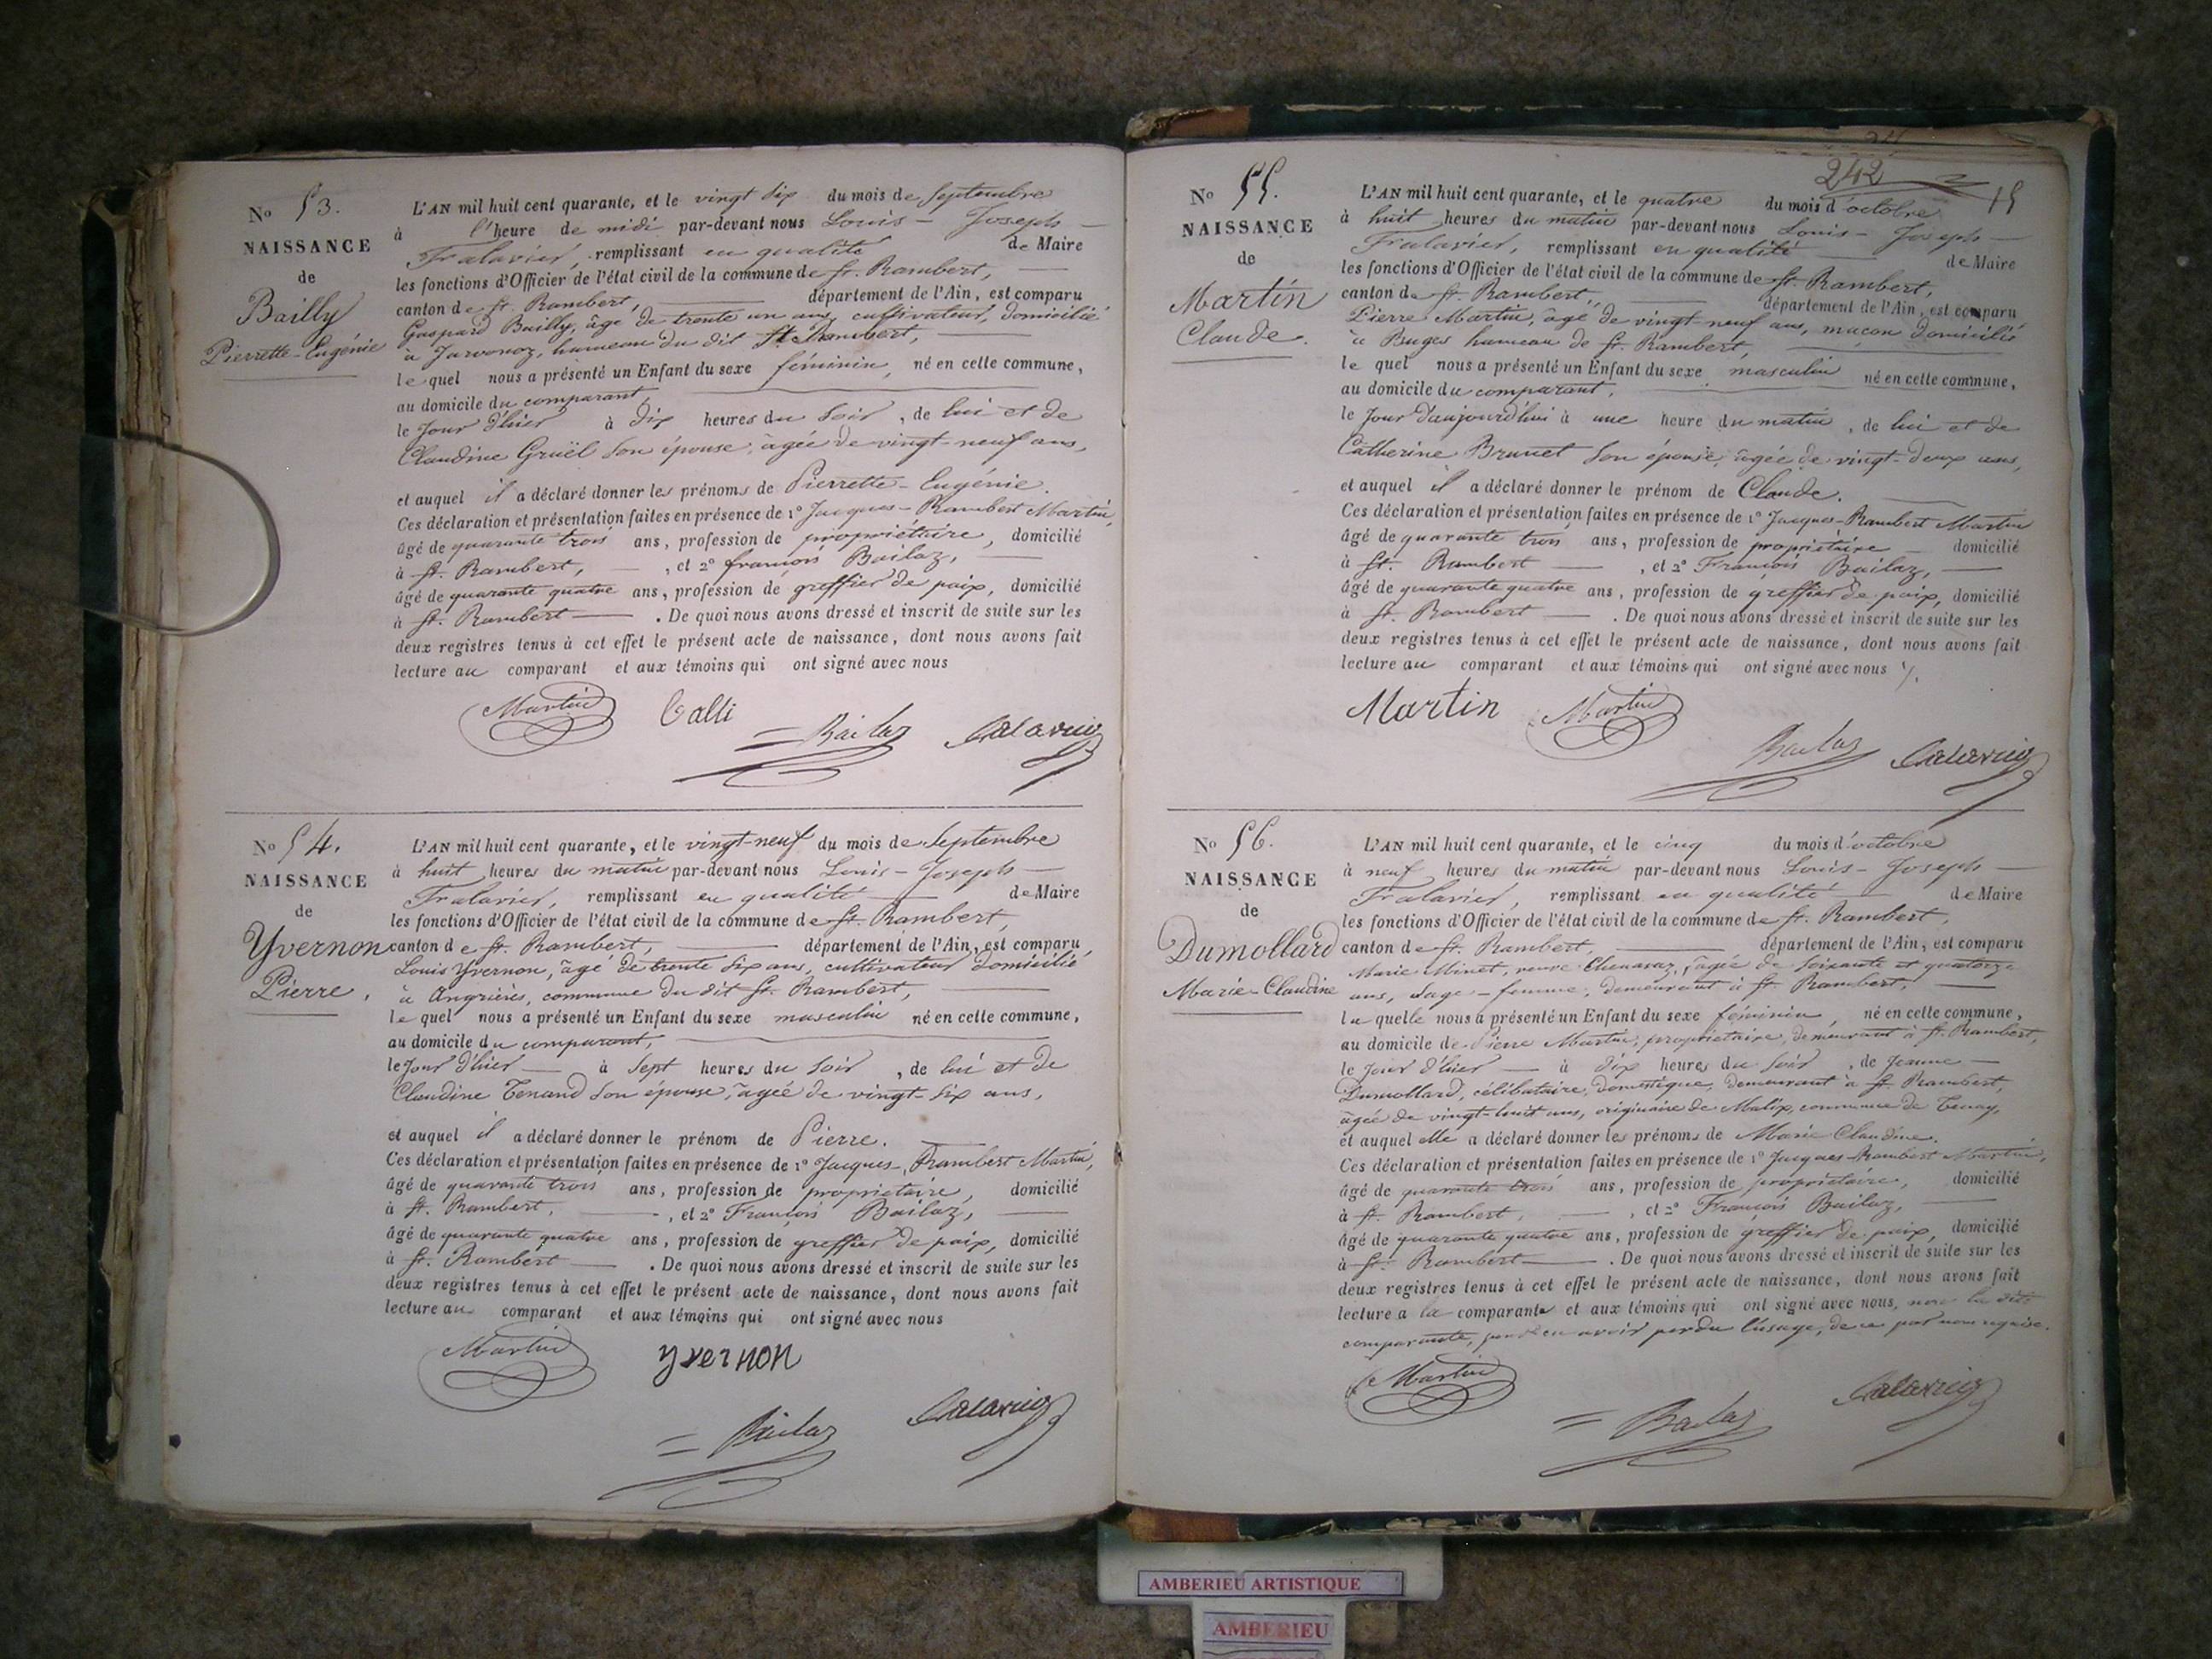 No 53.
NAISSANCE
de
Bailly
Pierrette-Eugénie
L'AN mil huit cent quarante, et le vingt six du mois de Septembre
à l'heure de midi par-devant nous Louis-Joseph
remplissant en qualité de Maire
les fonctions d'Officier de l'état civil de la commune de St. Rambert,
canton de St. Rambert, département de l'Ain, est comparu
Gaspard Bailly, âgé de trente un ans, cultivateur, domicilié
à Javornoz, hameau du dit St. Rambert,
le quel nous a présenté un Enfant du sexe féminin, né en cette commune,
au domicile du comparant,
le Jour d'hier à dix heures du Soir, de lui et de
Claudine Gruël son épouse, âgée de vingt-neuf ans,
et auquel il a déclaré donner les prénoms de Pierrette-Eugénie.
Ces déclaration et présentation faites en présence de 1º Jacques-Rambert Martin,
âgé de quarante trois ans, profession de propriétaire, domicilié
à St. Rambert, , et 2º françois Bailaz,
âgé de quarante quatre ans, profession de greffier de paix, domicilié
à St. Rambert . De quoi nous avons dressé et inscrit de suite sur les
deux registres tenus à cet effet le présent acte de naissance, dont nous avons fait
lecture au comparant et aux témoins qui ont signé avec nous
Martin Balli
Bailaz
No 54.
NAISSANCE
de
Yvernon
Pierre.
L'AN mil huit cent quarante, et le vingt-neuf du mois de Septembre
à huit heures du matin par-devant nous Louis-Joseph
remplissant en qualité de Maire
les fonctions d'Officier de l'état civil de la commune de St. Rambert,
canton de St. Rambert, département de l'Ain, est comparu
Louis Yvernon, âgé de trente six ans, cultivateur domicilié
à Angrières, commune du dit St. Rambert,
le quel nous a présenté un Enfant du sexe masculin né en cette commune,
au domicile du comparant,
le Jour d'hier à Sept heures du Soir, de lui et de
Claudine Tenand son épouse, âgée de vingt-six ans,
et auquel il a déclaré donner le prénom de Pierre.
Ces déclaration et présentation faites en présence de 1º Jacques-Rambert Martin,
âgé de quarante trois ans, profession de propriétaire, domicilié
à St. Rambert, , et 2º François Bailaz,
âgé de quarante quatre ans, profession de greffier de paix, domicilié
à St. Rambert . De quoi nous avons dressé et inscrit de suite sur les
deux registres tenus à cet effet le présent acte de naissance, dont nous avons fait
lecture au comparant et aux témoins qui ont signé avec nous
Martin yvernon
Bailaz
242
15
No 55.
NAISSANCE
de
Martin
Claude.
L'AN mil huit cent quarante, et le quatre du mois d'octobre
à huit heures du matin par-devant nous Louis-Joseph
remplissant en qualité de Maire
les fonctions d'Officier de l'état civil de la commune de St. Rambert,
canton de St. Rambert, département de l'Ain, est comparu
Pierre Martin, âgé de vingt-neuf ans, maçon domicilié
à Buges hameau de St. Rambert,
le quel nous a présenté un Enfant du sexe masculin né en cette commune,
au domicile du comparant,
le Jour d'aujourd'hui à une heure du matin, de lui et de
Catherine Brunet son épouse, âgée de vingt-deux ans,
et auquel il a déclaré donner le prénom de Claude.
Ces déclaration et présentation faites en présence de 1º Jacques-Rambert Martin
âgé de quarante trois ans, profession de propriétaire domicilié
à St. Rambert , et 2º François Bailaz,
âgé de quarante quatre ans, profession de greffier de paix, domicilié
à St. Rambert . De quoi nous avons dressé et inscrit de suite sur les
deux registres tenus à cet effet le présent acte de naissance, dont nous avons fait
lecture au comparant et aux témoins qui ont signé avec nous
Martin Martin
Bailaz
No 56.
NAISSANCE
de
Dumollard
Marie-Claudine
L'AN mil huit cent quarante, et le cinq du mois d'octobre
à neuf heures du matin par-devant nous Louis-Joseph
remplissant en qualité de Maire
les fonctions d'Officier de l'état civil de la commune de St. Rambert,
canton de St. Rambert, département de l'Ain, est comparu
Marie Minet, veuve Chenavaz, âgée de soixante et quatorze
ans, sage-femme, demeurant à St. Rambert,
la quelle nous a présenté un Enfant du sexe féminin, né en cette commune,
au domicile de Pierre Martin, propriétaire, demeurant à St. Rambert,
le Jour d'hier à dix heures du Soir, de Jeanne
Dumollard, célibataire, domestique, demeurant à St. Rambert,
âgée de vingt-huit ans, originaire de Malix, commune de Tenay,
et auquel elle a déclaré donner les prénoms de Marie Claudine.
Ces déclaration et présentation faites en présence de 1º Jacques-Rambert Martin,
âgé de quarante trois ans, profession de propriétaire, domicilié
à St. Rambert, , et 2º François Bailaz,
âgé de quarante quatre ans, profession de greffier de paix, domicilié
à St. Rambert . De quoi nous avons dressé et inscrit de suite sur les
deux registres tenus à cet effet le présent acte de naissance, dont nous avons fait
lecture a la comparante et aux témoins qui ont signé avec nous, non la dite
comparante, pour en avoir perdu l'usage, de ce par nous requise.
Martin
Bailaz
AMBERIEU ARTISTIQUE
AMBERIEU